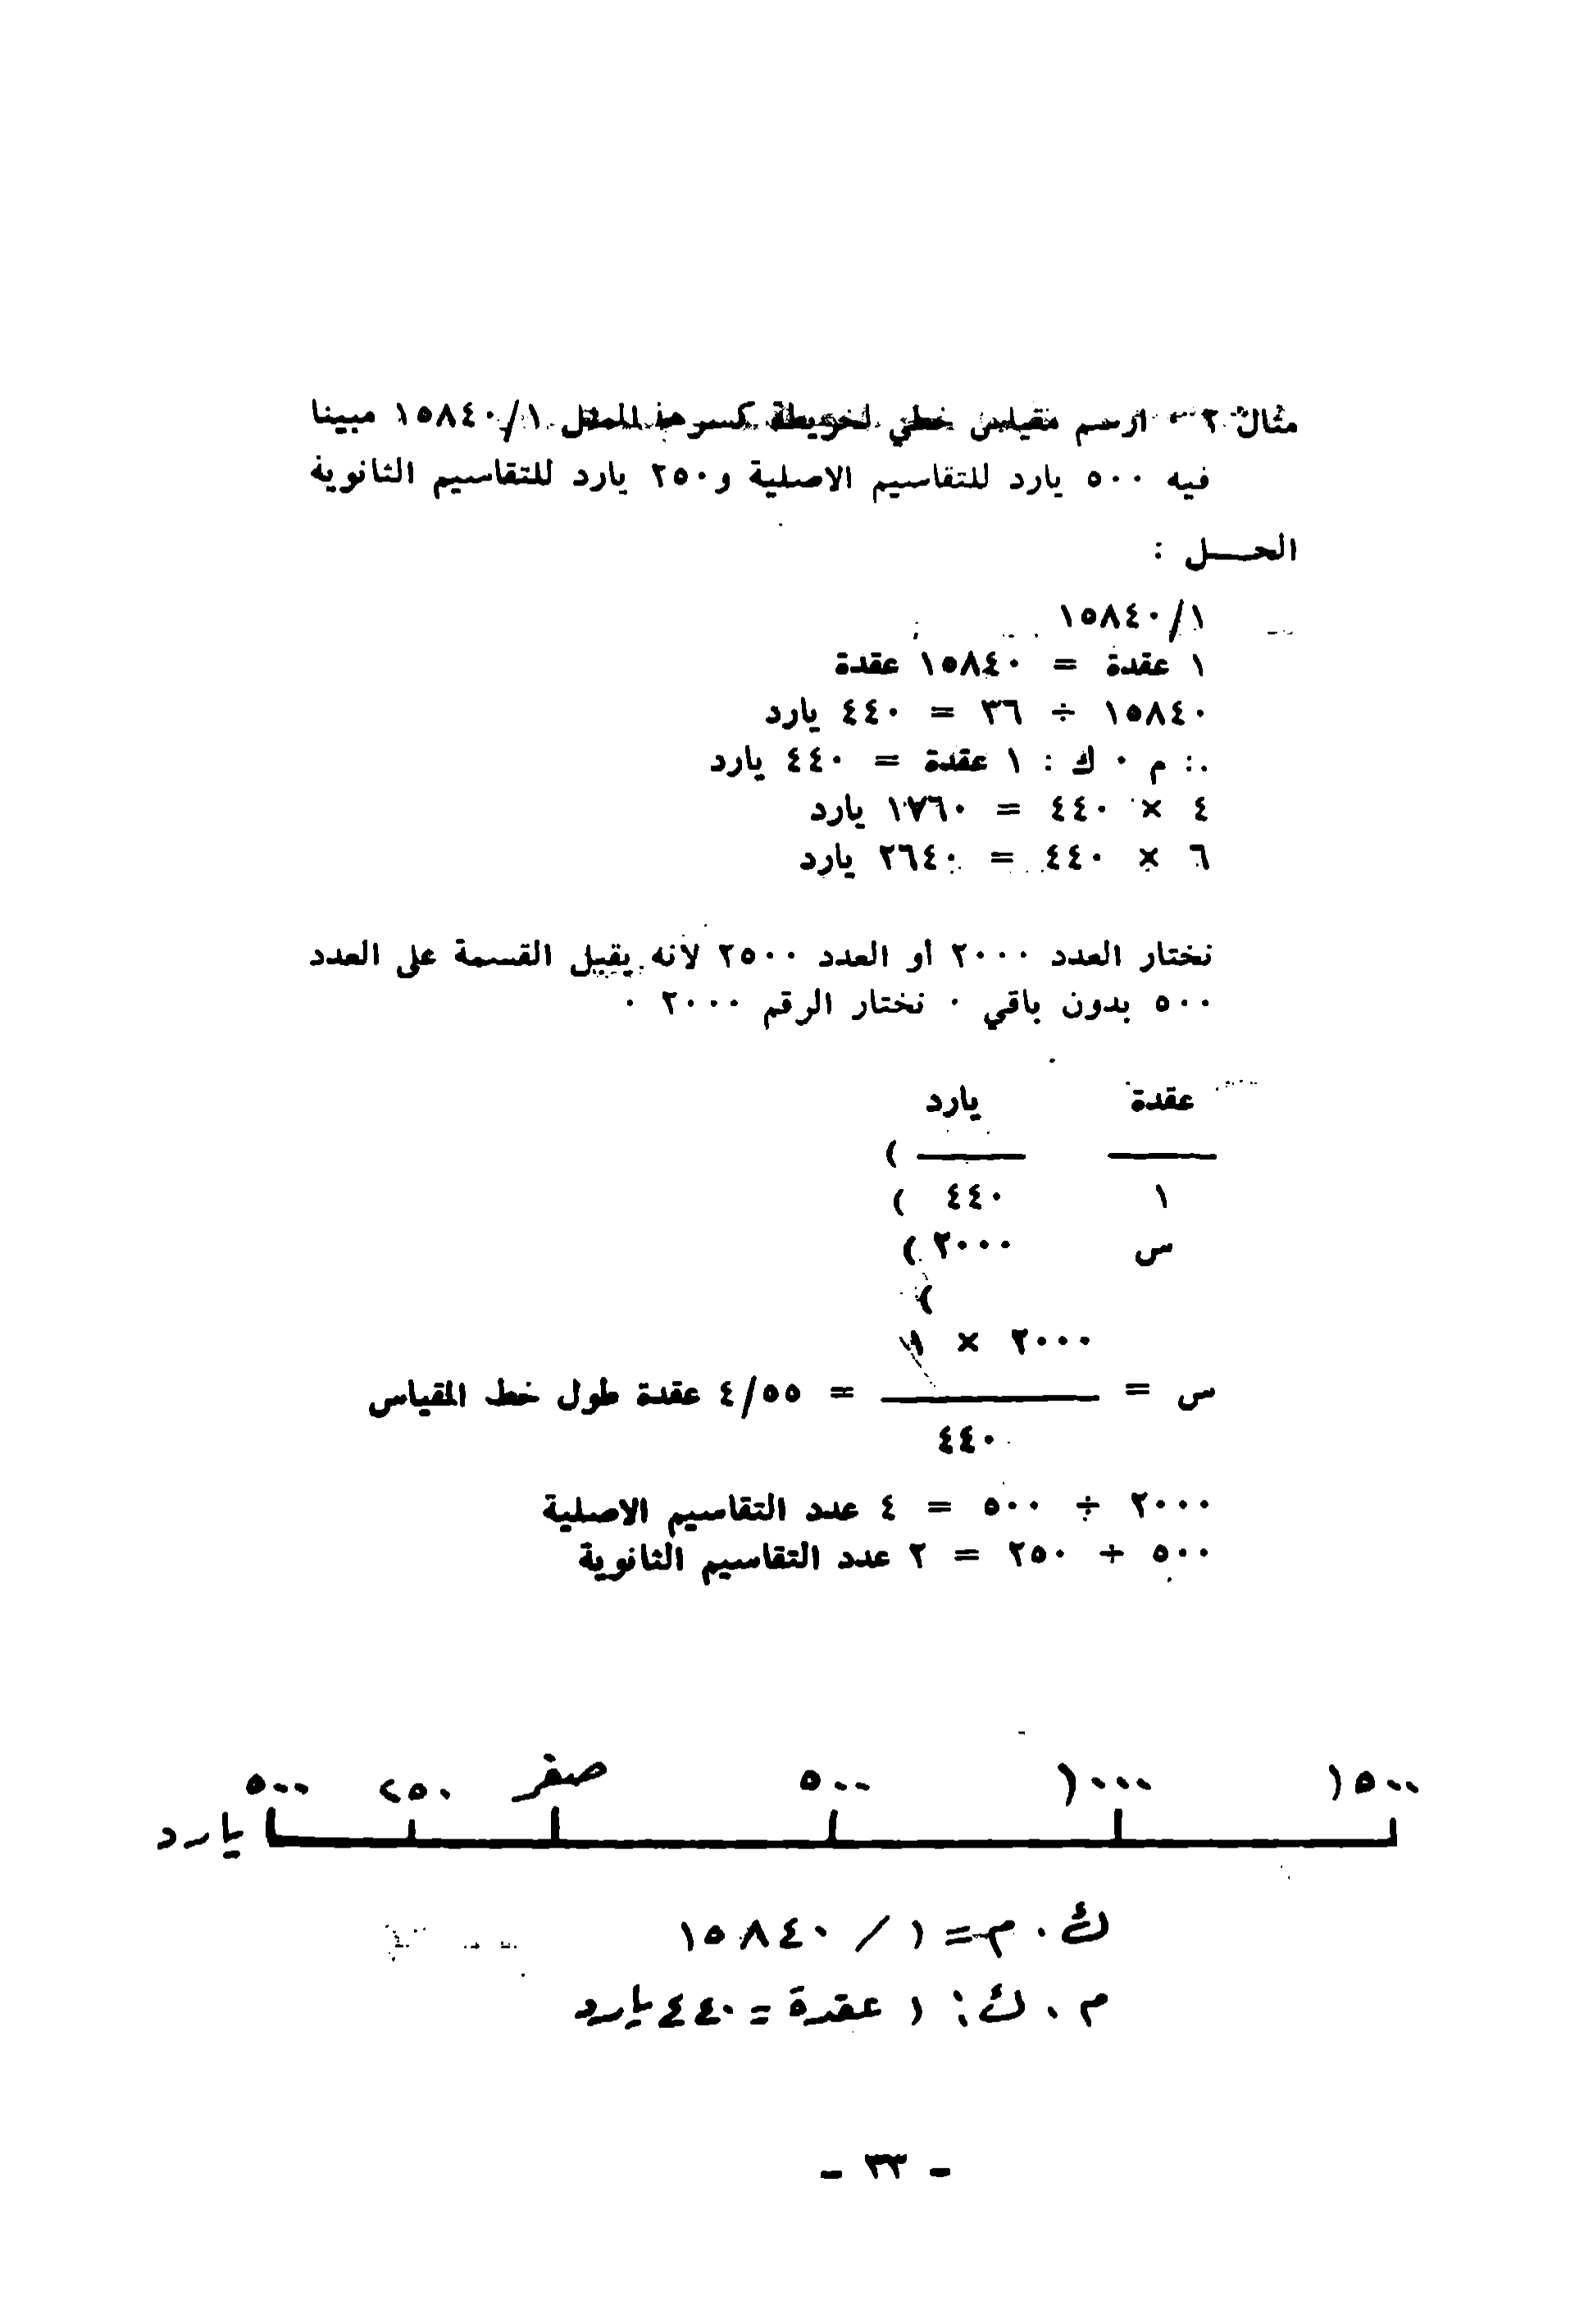 مثال ٢ ٠ ارسم مقياس خطي لخريطة كسرها الممثل ١/١٥٨٤٠ مبينا
فيه ٥٠٠ يارد للتقاسيم الاصلية و٢٥٠ يارد للتقاسيم الثانوية
الحـــل :
١/١٥٨٤٠
١ عقدة = ١٥٨٤٠ عقدة
١٥٨٤٠ ÷ ٣٦ = ٤٤٠ يارد
.: م ٠ ك : ١ عقدة = ٤٤٠ يارد
٤ × ٤٤٠ = ١٧٦٠ يارد
٦ × ٤٤٠ = ٢٦٤٠ يارد
نختار العدد ٢٠٠٠ أو العدد ٢٥٠٠ لانه يقبل القسمة على العدد
٥٠٠ بدون باقي ٠ نختار الرقم ٢٠٠٠ ٠
عقدة يارد
(
١ ٤٤٠ (
س ٢٠٠٠ (
(
٢٠٠٠ × ١
س = ــــــ = ٤/٥٥ عقدة طول خط المقياس
٤٤٠
٢٠٠٠ ÷ ٥٠٠ = ٤ عدد التقاسيم الاصلية
٥٠٠ ÷ ٢٥٠ = ٢ عدد التقاسيم الثانوية
٥٠٠ ٢٥٠ صفر ٥٠٠ ١٠٠٠ ١٥٠٠
يارد
ك . م = ١ / ١٥٨٤٠
م . ك : ١ عقدة = ٤٤٠ يارد
- ٣٣ -